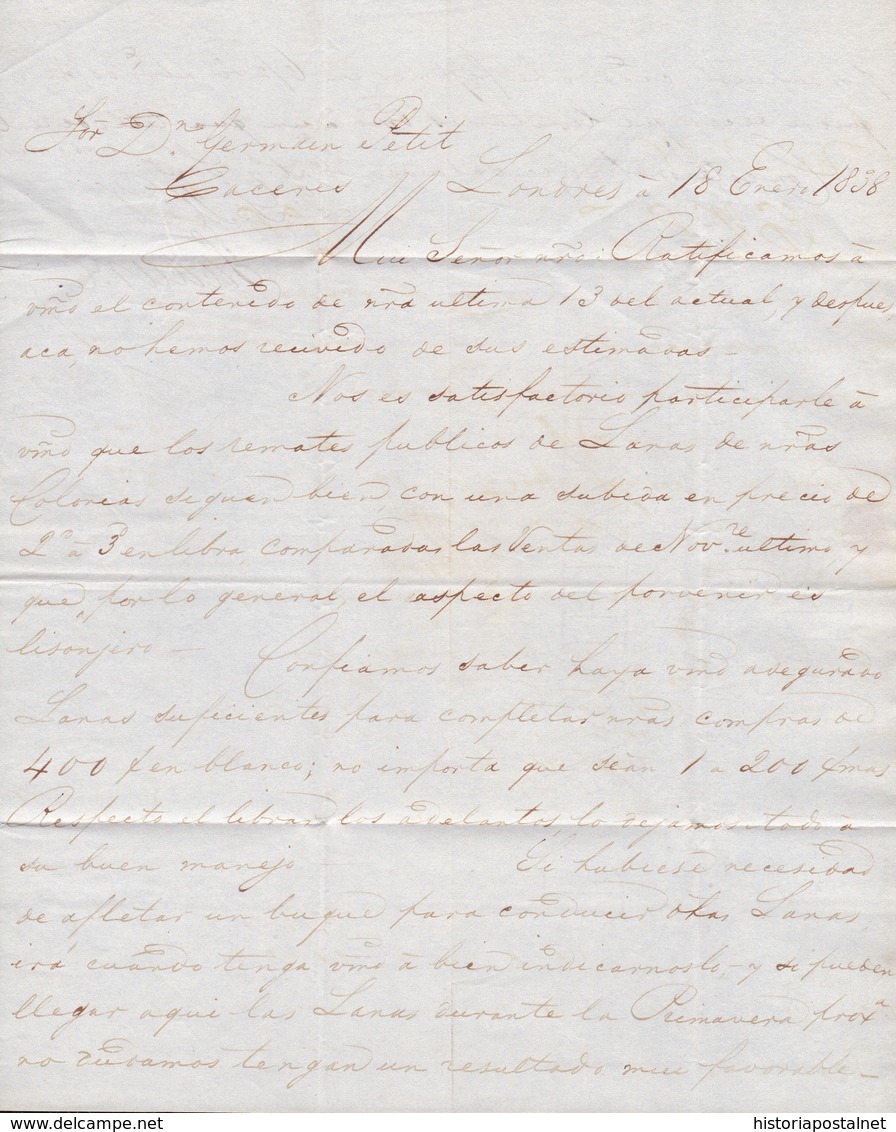 Sor Dn. Germain Petit
Caceres Londres à 18 Enero 1838
Mui Señor nro: Ratificamos à
vmd el contenido de nra ultima 13 del actual, y despues
aca, no hemos recivido de sus estimadas -
Nos es satisfactorio participarle à
vmd que los remates publicos de Lanas de nras
Colonias siguen bien, con una subida en precio de
2d à 3d en libra, comparadas las Ventas de Novre. ultimo, y
que, por lo general, el aspecto del porvenir es
lisonjero -
Confiamos saber haya vmd asegurado
Lanas suficientes para completar nras compras de
400 en blanco; no importa que sean 1 a 200 mas
Respecto el librar los adelantos, lo dejamos todo à
su buen manejo - Si hubiese necesidad
de afletar un buque para conducir dhas Lanas
irá cuando tenga vmd à bien indicarnoslo, - y si pueden
llegar aqui las Lanas durante la Primavera proxa.
no dudamos tengan un resultado mui favorable -
historiapostalnet